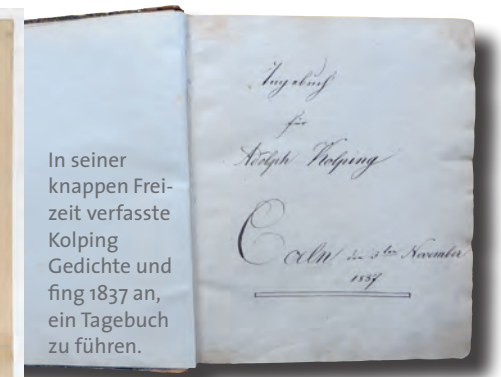 In seiner
knappen Frei-
zeit verfasste
Kolping
Gedichte und
fing 1837 an,
ein Tagebuch
zu führen.
Tagebuch
für
Adolph Kolping
Cöln den 3ten November
1837